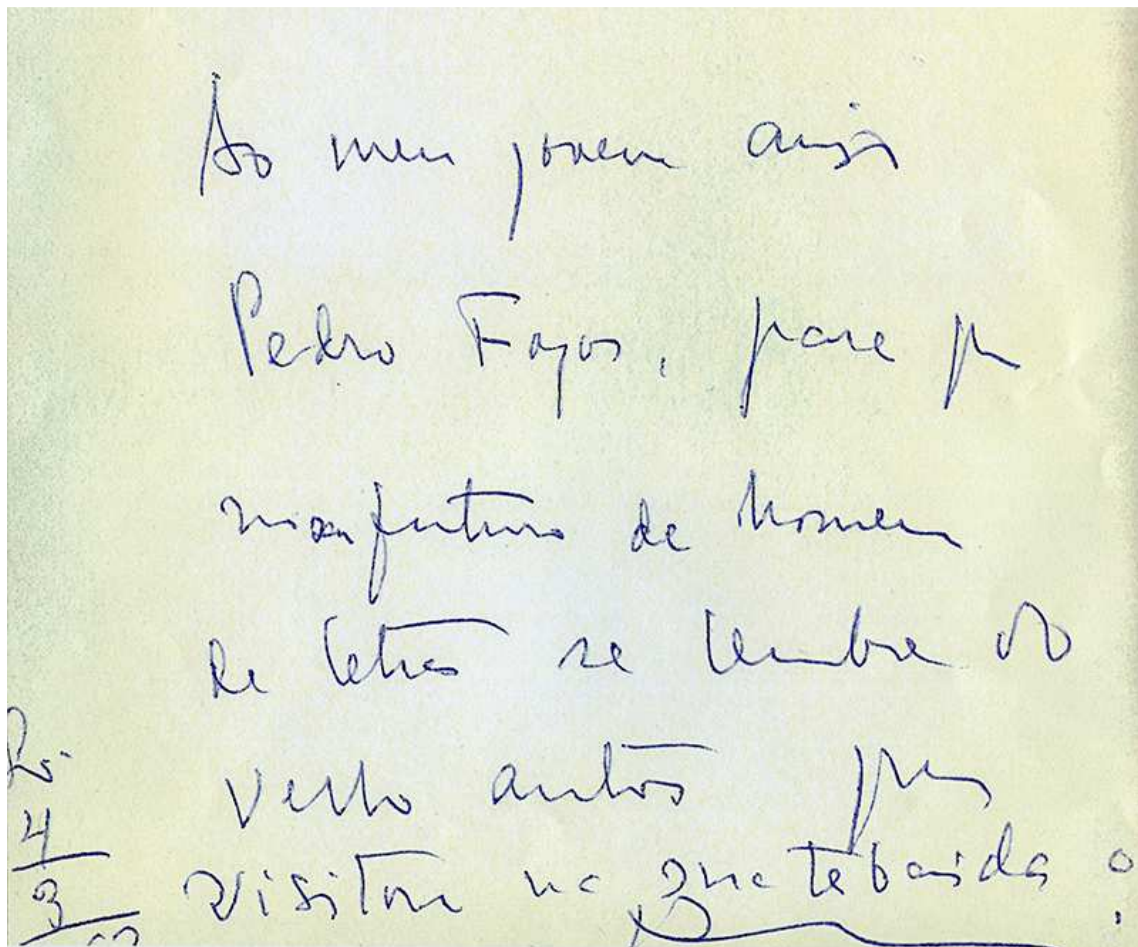 Ao meu jovem amigo
Pedro Fayos, para que
futuro de homem
de letras se lembre do
velho autor que
visitou na sua tebaida
4
3